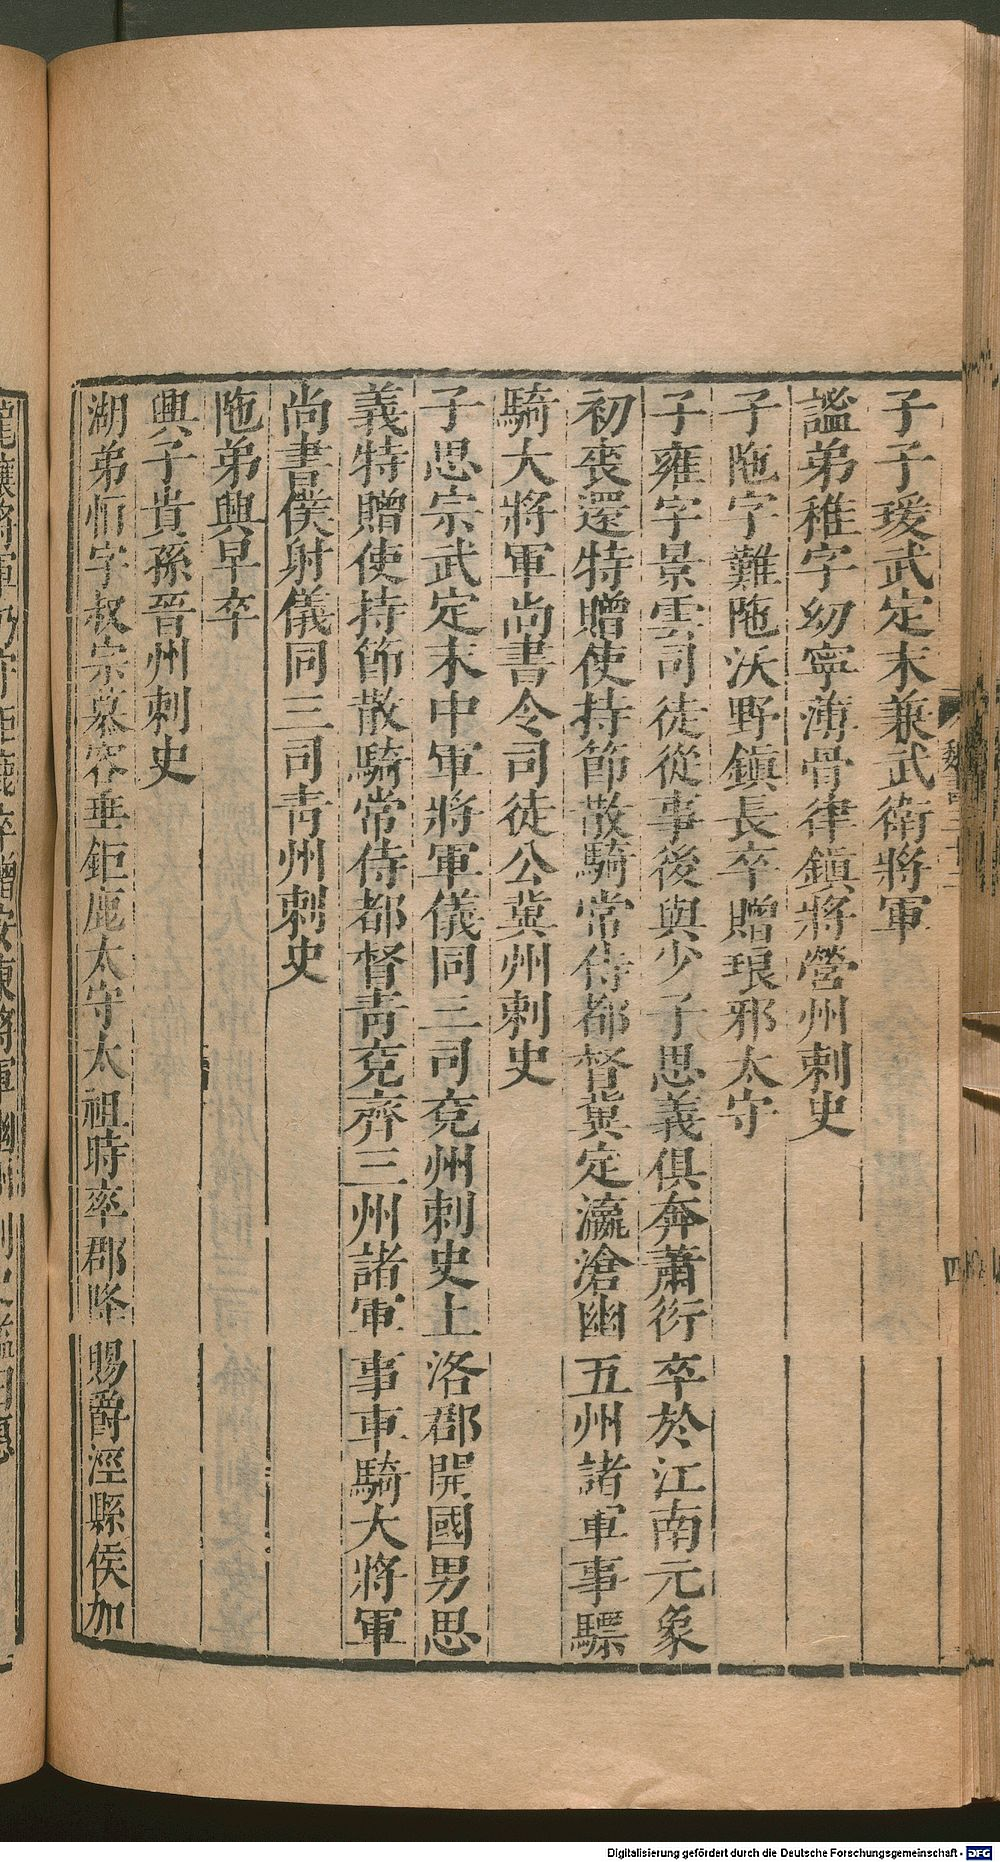 子子瑗武定末兼武衛將軍
謐弟稚字幼寧薄骨律鎮將營州刺史
子陁字難陁沃野鎮長卒贈琅邪太守
子雍字景雲司徒從事後與少子思義俱奔蕭衍卒於江南元象
初喪還特贈使持節散騎常侍都督冀定瀛滄幽五州諸軍事驃
騎大將軍尚書令司徒公冀州刺史
子思宗武定末中軍將軍儀同三司兗州刺史上洛郡開國男思
義特贈使持節散騎常侍都督青兗齊三州諸軍事車騎大將軍
尚書僕射儀同三司青州刺史
陁弟興早卒
興子貴孫晉州刺史
湖弟恒字叔宗慕容垂鉅鹿太守太祖時率郡降賜爵涇縣侯加
龍驤將軍仍守鉅鹿卒贈安東將軍幽州刺史諡曰惠
Digitalisierung gefördert durch die Deutsche Forschungsgemeinschaft - DFG